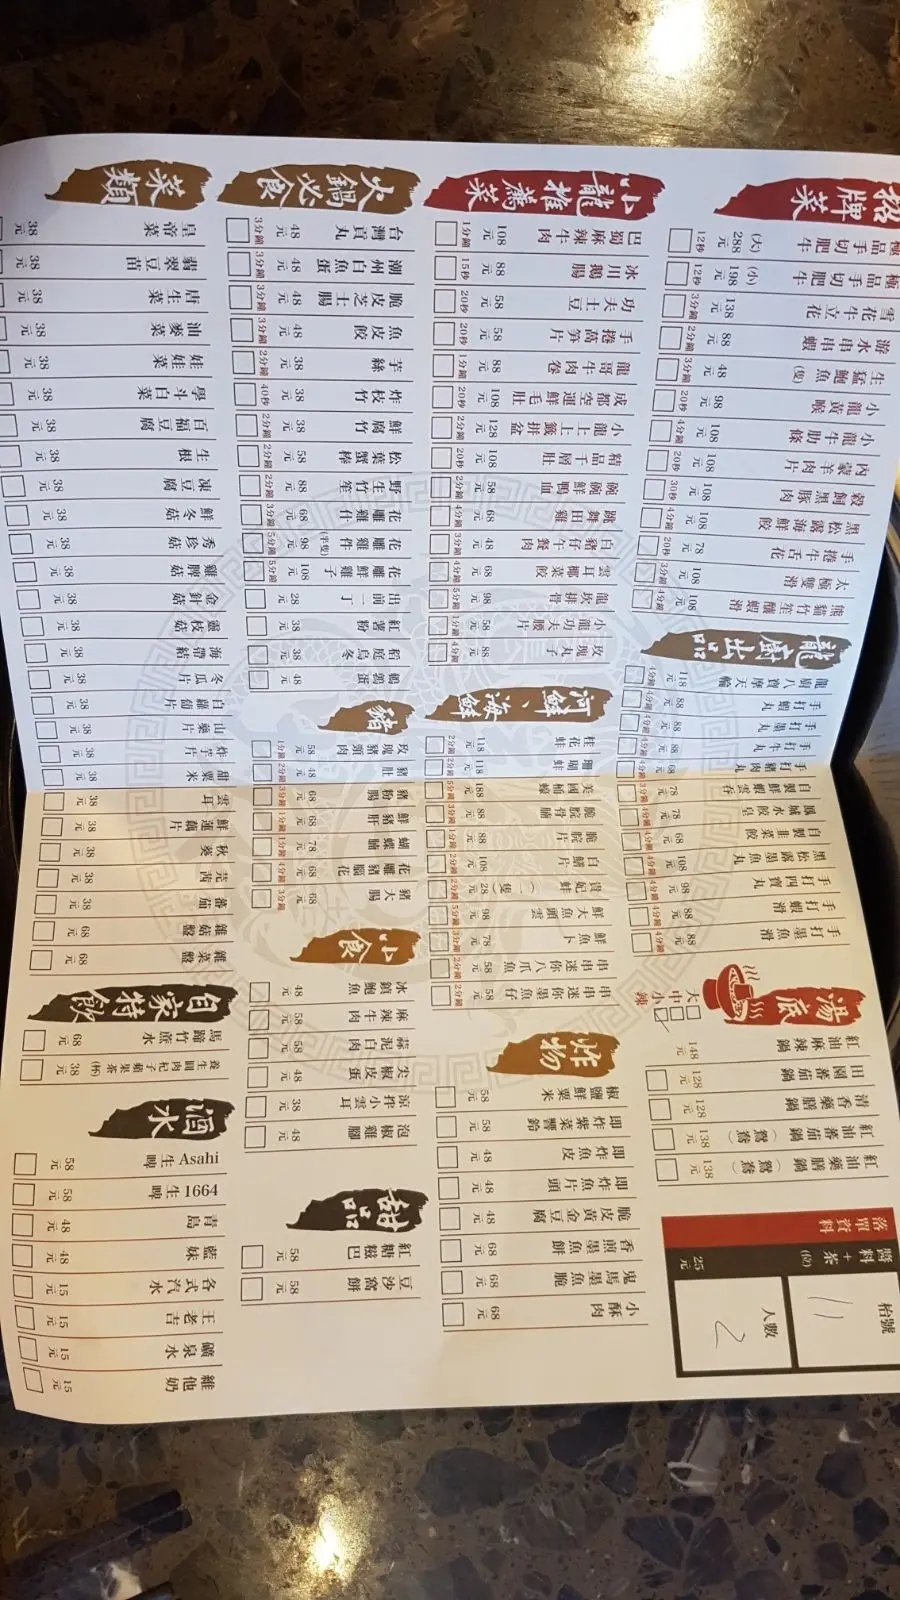 招牌菜
極品手切肥牛 (大) 288元 12秒
極品手切肥牛 (小) 198元 12秒
雪花牛立花 138元 3分鐘
游水串串蝦 88元 2分鐘
生猛鮑魚(隻) 48元 3分鐘
小龍黃喉 98元 20秒
小龍牛肋條 108元 4分鐘
內蒙羊肉片 108元 20秒
穀飼黑豚肉 108元 30秒
黑松露海鮮餃 108元 4分鐘
手捲牛舌花 78元 20秒
太極雙滑 108元 3分鐘
熊貓竹笙釀蝦滑 108元 4分鐘
龍廚出品
龍廚八寶摩天輪 118元 4分鐘
手打蝦丸 88元 4分鐘
手打墨丸 88元 4分鐘
手打牛丸 88元 4分鐘
手打豬肉丸 68元 4分鐘
自製鮮蝦雲吞 78元 3分鐘
鳳城水餃皇 78元 4分鐘
自製韭菜餃 68元 4分鐘
黑松露墨魚丸 108元 4分鐘
手打四寶丸 98元 4分鐘
手打蝦滑 88元 4分鐘
手打墨魚滑 88元 4分鐘
湯底
大中小辣
紅油麻辣鍋 148元
田園蕃茄鍋 128元
清香藥膳鍋 128元
紅油蕃茄鍋(鴛鴦) 138元
紅油藥膳鍋(鴛鴦) 138元
落單資料
醬料+茶(位) 25元
枱號 11
人數 2
小龍推薦菜
巴蜀麻辣牛肉 108元 1分鐘
冰川鵝腸 88元 15秒
功夫土豆 58元 20秒
手捲萵筍片 58元 20秒
龍哥牛肉卷 88元 1分鐘
成都空運鮮毛肚 108元 20秒
小龍上上籤拼盆 128元 2分鐘
精品千層肚 108元 20秒
豌豌鮮鴨血 58元 2分鐘
跳舞田雞 68元 4分鐘
白豬仔午餐肉 48元 3分鐘
雲耳椰菜餃 68元 4分鐘
龍坎排骨 98元 5分鐘
小龍功夫腰片 58元 1分鐘
玫瑰丸子 88元 4分鐘
河鮮、海鮮
桂花蚌 118元 2分鐘
珊瑚蚌 118元 2分鐘
美國桶蠔 188元
脆脘骨腩 88元
脆脘片 88元 1分鐘
白鱔片 108元 2分鐘
貴妃蚌(一隻) 28元 2分鐘
鮮大魚頭雲 98元 5分鐘
鮮魚卜 78元 3分鐘
串串迷你八爪魚 58元 2分鐘
串串迷你墨魚仔 58元 2分鐘
炸物
椒鹽鮮粟米 58元
即炸紫菜響鈴 58元
即炸魚皮 48元
即炸魚片頭 48元
脆皮黃金豆腐 48元
香煎墨魚餅 68元
鬼馬墨魚脆 68元
小酥肉 68元
火鍋必食
台灣貢丸 48元 3分鐘
潮州白魚蛋 48元 3分鐘
脆皮芝士腸 48元 3分鐘
魚皮餃 48元 3分鐘
芋絲 38元 2分鐘
炸枝竹 38元 40秒
鮮腐竹 38元 2分鐘
松葉蟹棒 58元 2分鐘
野生竹笙 88元 2分鐘
花雕雞什 68元 3分鐘
花雕雞件 (半隻) 98元 5分鐘
花雕鮮雞子 108元 5分鐘
出前一丁 28元
紅薯粉 38元
稻庭烏冬 38元
鵪鶉蛋 48元
豬
玫瑰豬頸肉 58元 1分鐘
豬肚 48元 2分鐘
豬粉腸 68元 3分鐘
鮮豬肝 68元 1分鐘
蝴蝶腩 78元 1分鐘
花雕豬腦花 68元 4分鐘
豬大腸 68元 3分鐘
小食
冰鎮鮑魚 48元
麻辣牛肉 58元
蒜泥白肉 58元
尖椒皮蛋 48元
涼拌小雲耳 38元
泡椒雞腳 48元
甜品
紅糖糍巴 58元
豆沙窩餅 58元
菜類
皇帝菜 38元
翡翠豆苗 38元
唐生菜 38元
油麥菜 38元
娃娃菜 38元
學斗白菜 38元
百福豆腐 38元
生根 38元
凍豆腐 38元
鮮冬菇 38元
秀珍菇 38元
雞脾菇 38元
金針菇 38元
靈枝菇 38元
海帶結 38元
冬瓜片 38元
白蘿蔔 38元
山藥片 38元
炸芋片 38元
甜粟米 38元
雲耳 38元
鮮蓮藕片 38元
秋葵 38元
芫茜 38元
蕃茄 38元
雜菇盤 68元
雜菜盤 68元
自家特飲
馬蹄竹蔗水 68元
養生圓肉杞子蘋果茶(杯) 38元
酒水
Asahi生啤 58元
1664生啤 58元
青島 48元
藍妹 48元
各式汽水 15元
王老吉 15元
礦泉水 15元
維他奶 15元